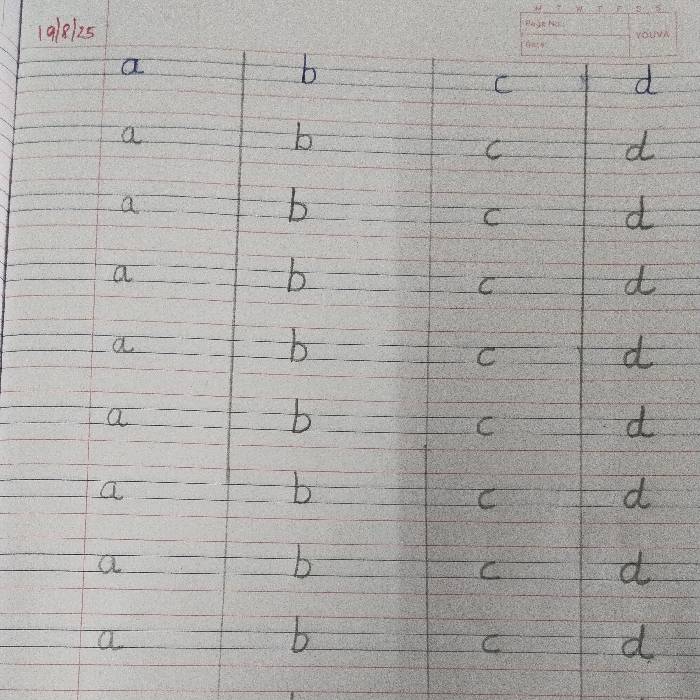 M T W T F S S
Page No.:
Date:
YOUVA
19/8/25
a b c d
a b c d
a b c d
a b c d
a b c d
a b c d
a b c d
a b c d
a b c d